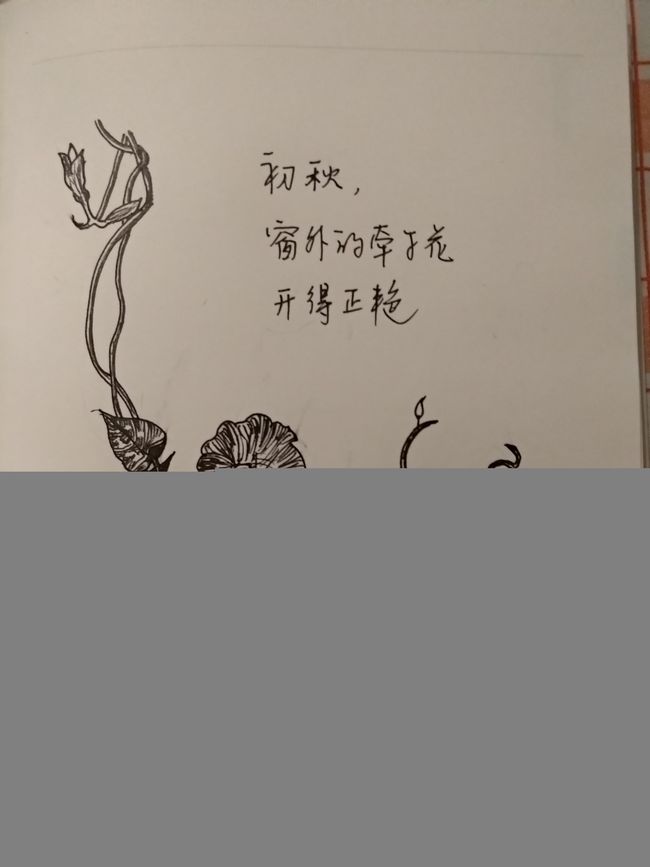 初秋，
窗外的牵牛花
开得正艳